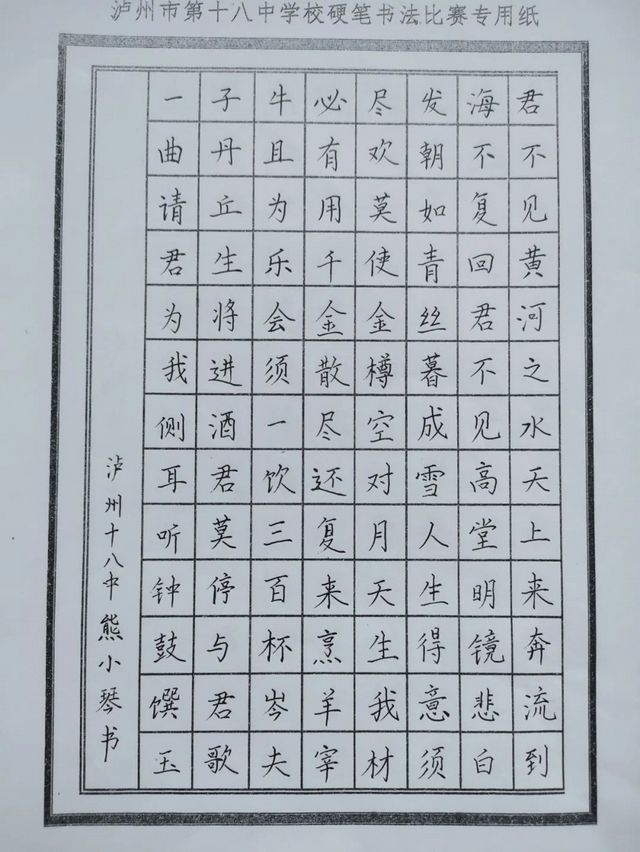 泸州市第十八中学校硬笔书法比赛专用纸
君不见黄河之水天上来奔流到
海不复回君不见高堂明镜悲白
发朝如青丝暮成雪人生得意须
尽欢莫使金樽空对月天生我材
必有用千金散尽还复来烹羊宰
牛且为乐会须一饮三百杯岑夫
子丹丘生将进酒君莫停与君歌
一曲请君为我侧耳听钟鼓馔玉
泸州十八中熊小琴书